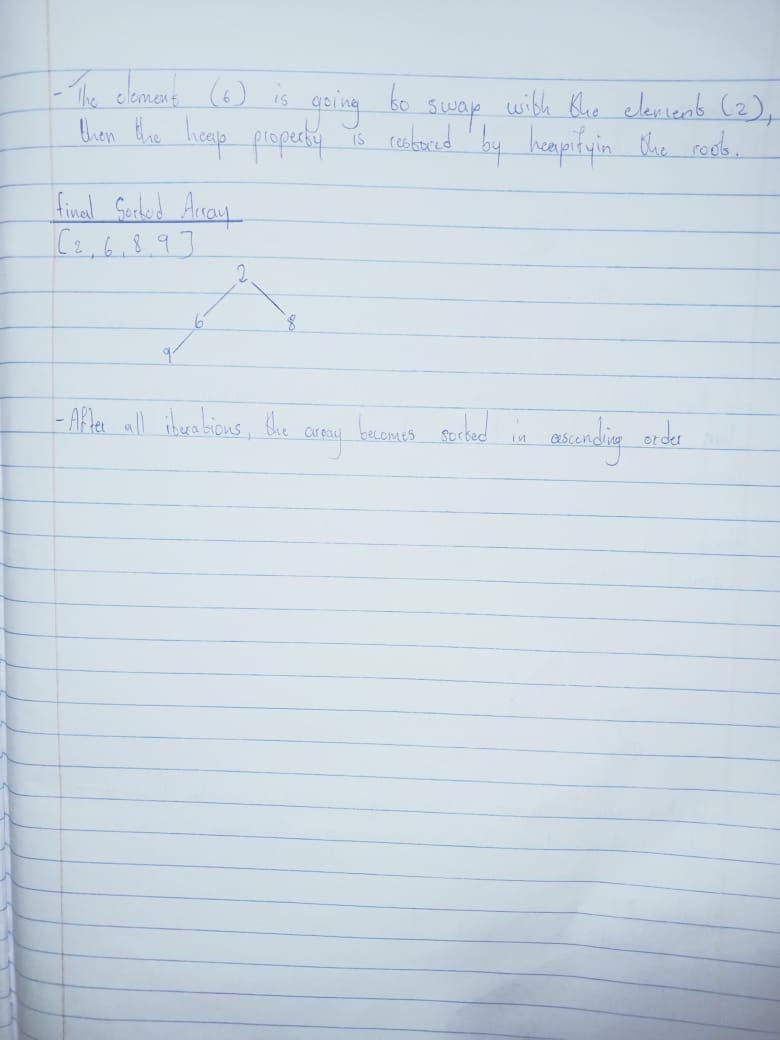 - The element (6) is going to swap with the elements (2),
then the heap property is restored by heapifyin the root.
final Sorted Array
[2, 6, 8, 9]
2
6 8
9
- After all iterations, the array becomes sorted in ascending order